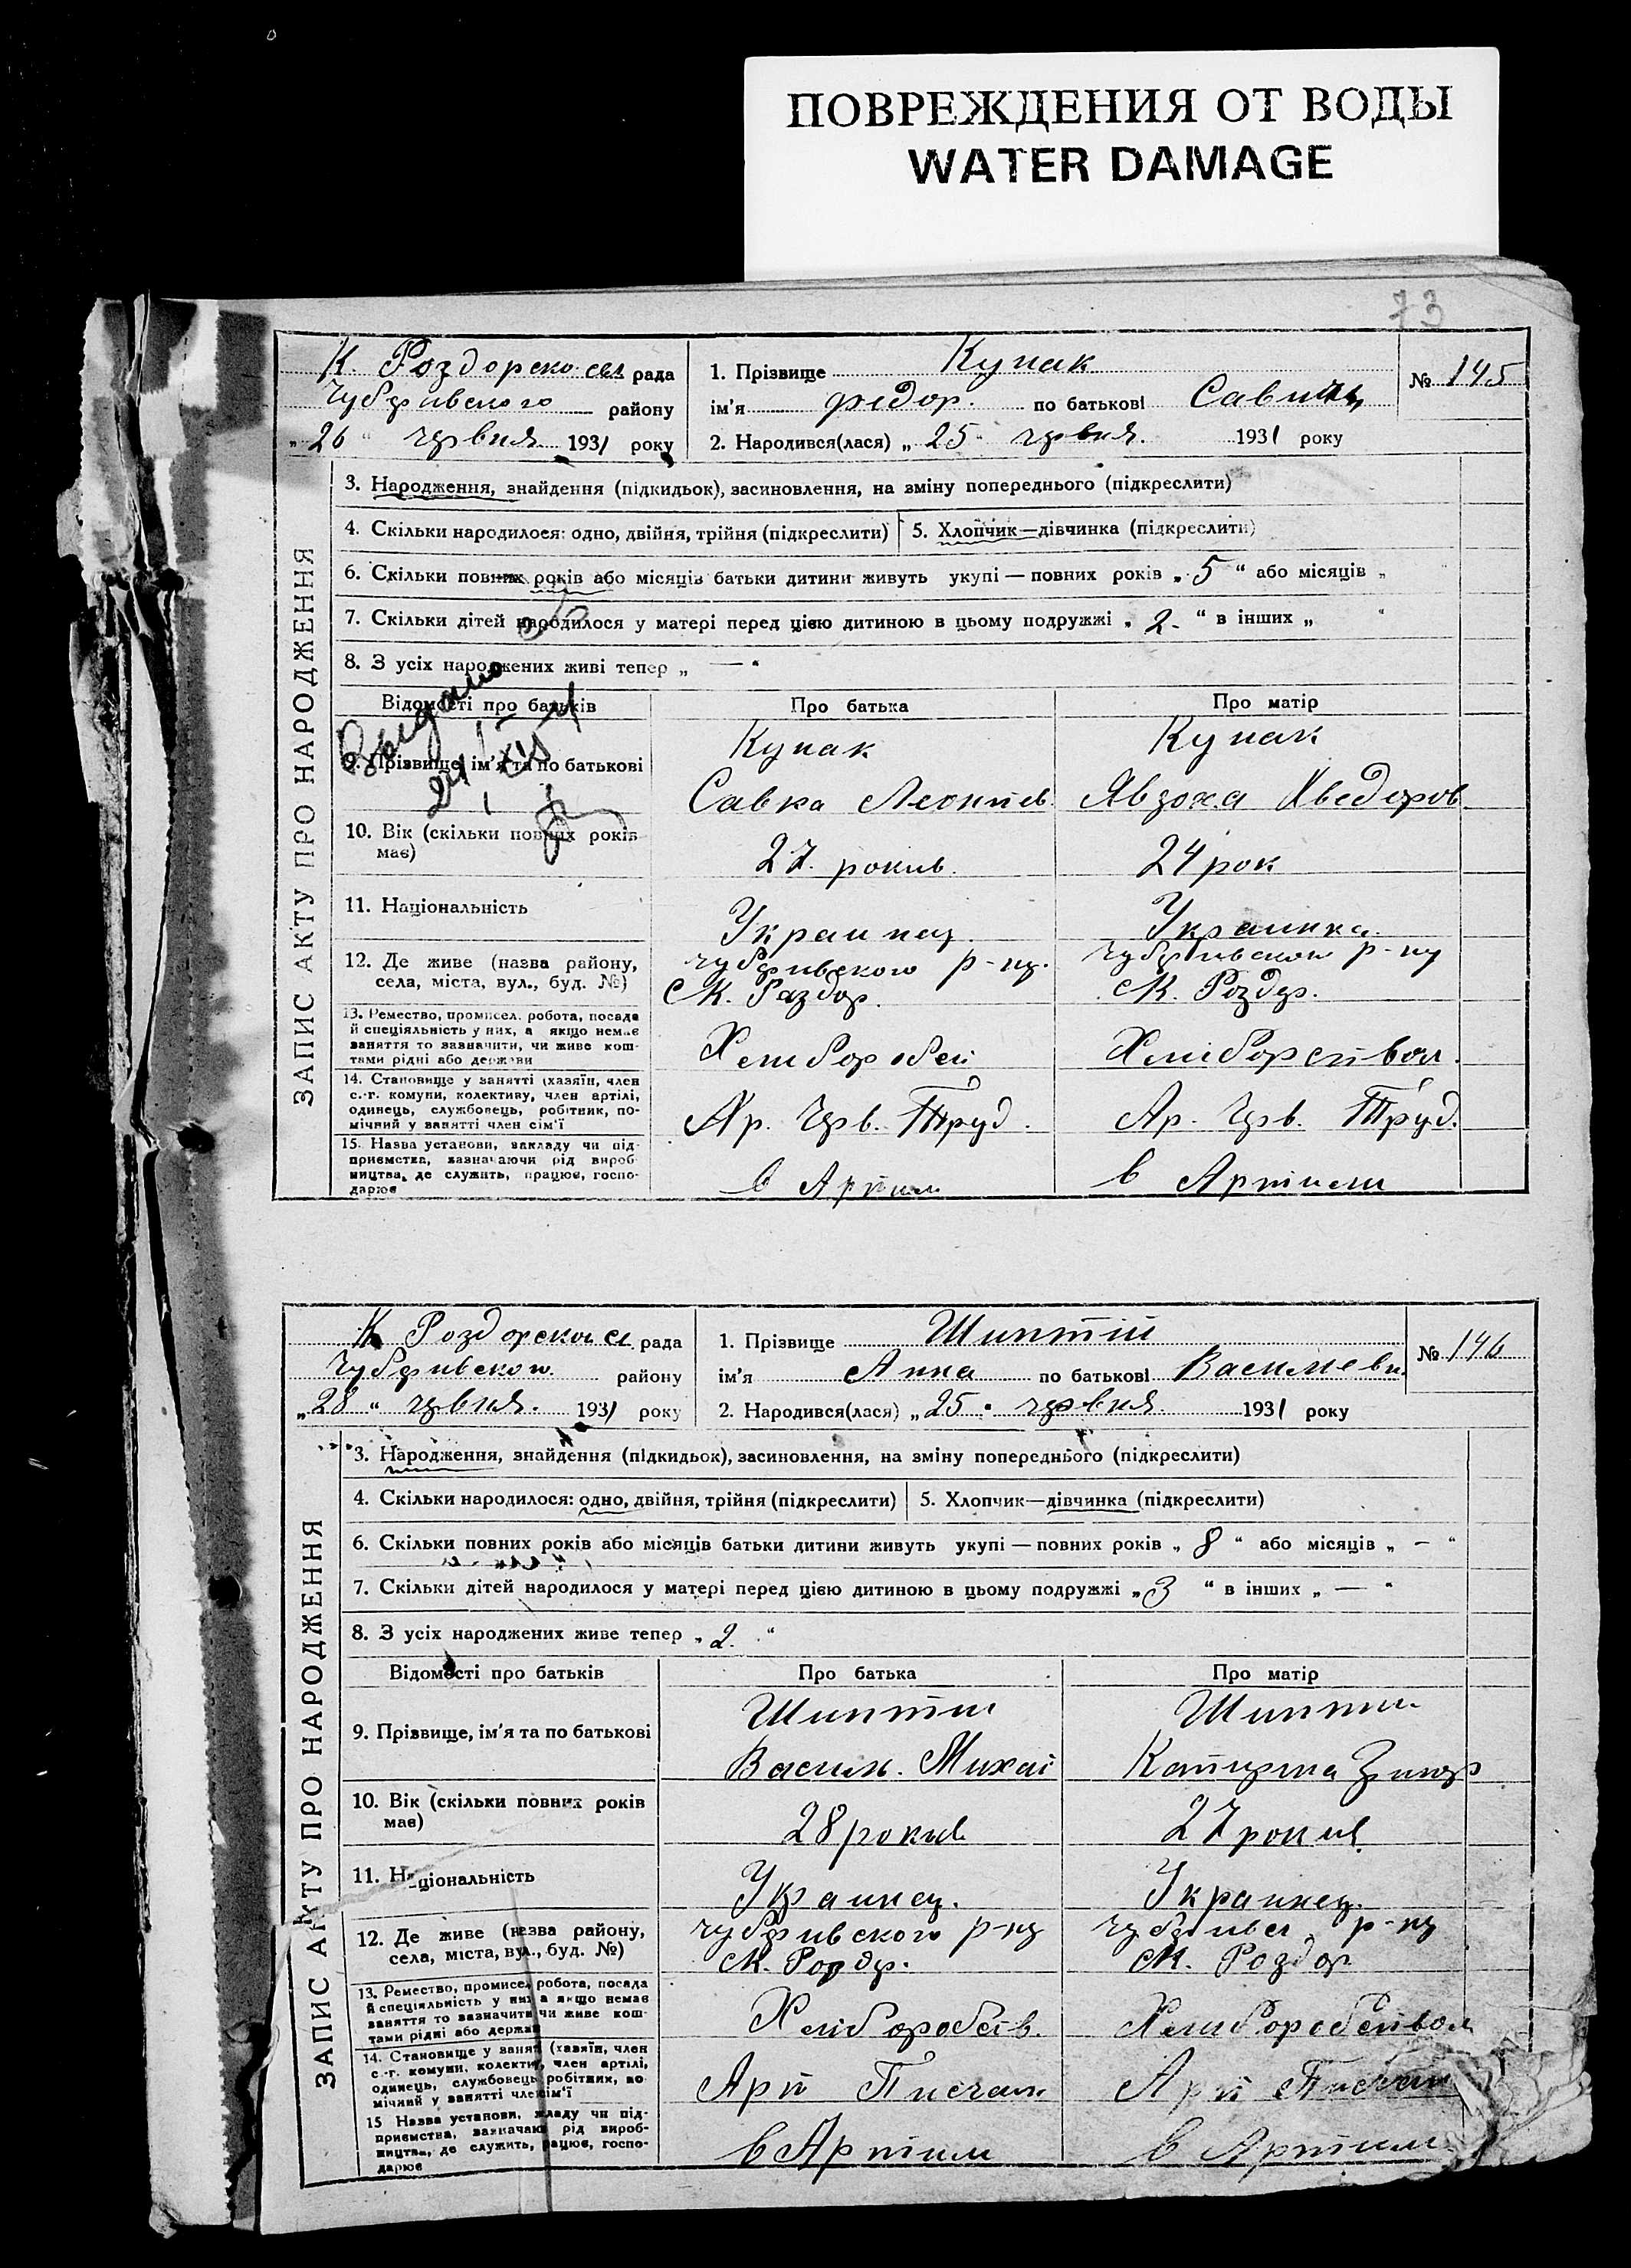 ПОВРЕЖДЕНИЯ ОТ ВОДЫ
WATER DAMAGE
73
ЗАПИС АКТУ ПРО НАРОДЖЕННЯ
К. Роздорско сел рада
Чубарівского району
„26“ червня 1931 року
1. Прізвище Купак
ім'я Федор. по батькові
№ 145
2. Народився(лася) „25“ червня. 1931 року
3. Народження, знайдення (підкидьок), засиновлення, на зміну попереднього (підкреслити)
4. Скільки народилося: одно, двійня, трійня (підкреслити)
5. Хлопчик—дівчинка (підкреслити)
6. Скільки повних років або місяців батьки дитини живуть укупі — повних років „5“ або місяців „ “
7. Скільки дітей народилося у матері перед цією дитиною в цьому подружжі „2.“ в інших „ “
8. З усіх народжених живі тепер „—“
Выдано
Відомості про батьків
Про батька
Про матір
9. Прізвище, ім'я та по батькові
Купак
Савка Леонтів.
Купак
Явдоха Хведоров
10. Вік (скільки повних років має)
27. років.
24 рок
11. Національність
Украинец
Украинка.
12. Де живе (назва району, села, міста, вул., буд. №)
Чубарівского р-ну.
М. Раздор.
Чубарівского р-ну
М. Роздор.
13. Ремество, промисел, робота, посада
й спеціяльність у них, а якщо немає
заняття то зазначити, чи живе кош-
тами рідні або держави
14. Становище у занятті (хазяїн, член
с.-г. комуни, колективу, член артілі,
одинець, службовець, робітник, по-
мічний у занятті член сім'ї
Ар. Черв. Труд.
Ар. Черв. Труд.
15. Назва установи, закладу чи під-
приємства, зазначаючи рід вироб-
ництва, де служить, працює, госпо-
дарює
в Артили
в Артили
ЗАПИС АКТУ ПРО НАРОДЖЕННЯ
К Роздорска сл рада
Чубарівского. району
„28“ червня. 1931 року
1. Прізвище Шиптій
ім'я Анна по батькові Василевн.
№ 146
2. Народився(лася) „25“ червня. 1931 року
3. Народження, знайдення (підкидьок), засиновлення, на зміну попереднього (підкреслити)
4. Скільки народилося: одно, двійня, трійня (підкреслити)
5. Хлопчик—дівчинка (підкреслити)
6. Скільки повних років або місяців батьки дитини живуть укупі — повних років „8“ або місяців „—“
7. Скільки дітей народилося у матері перед цією дитиною в цьому подружжі „3“ в інших „—“
8. З усіх народжених живе тепер „2.“
Відомості про батьків
Про батька
Про матір
9. Прізвище, ім'я та по батькові
Шиптий
Василь. Михай
Шиптий
Катерина
10. Вік (скільки повних років має)
28 років
27 років
11. Національність
Украинец.
Украинец.
12. Де живе (назва району, села, міста, вул., буд. №)
Чубарівского р-ну
М. Роздор.
Чубарівс р-ну
М. Роздор
13. Ремество, промисел, робота, посада
й спеціяльність у них а якщо немає
заняття то зазначити чи живе кош-
тами рідні або держав
Хліборобств.
14. Становище у занят (хазяїн, член
с.-г. комуни, колектив, член артілі,
одинець, службовець робітник, по-
мічний у занятті член сім'ї
15 Назва установи, кладу чи під-
приємства, зазначаю рід вироб-
ництва, де служить, рацює, госпо-
дарює
в Артили
в Артили